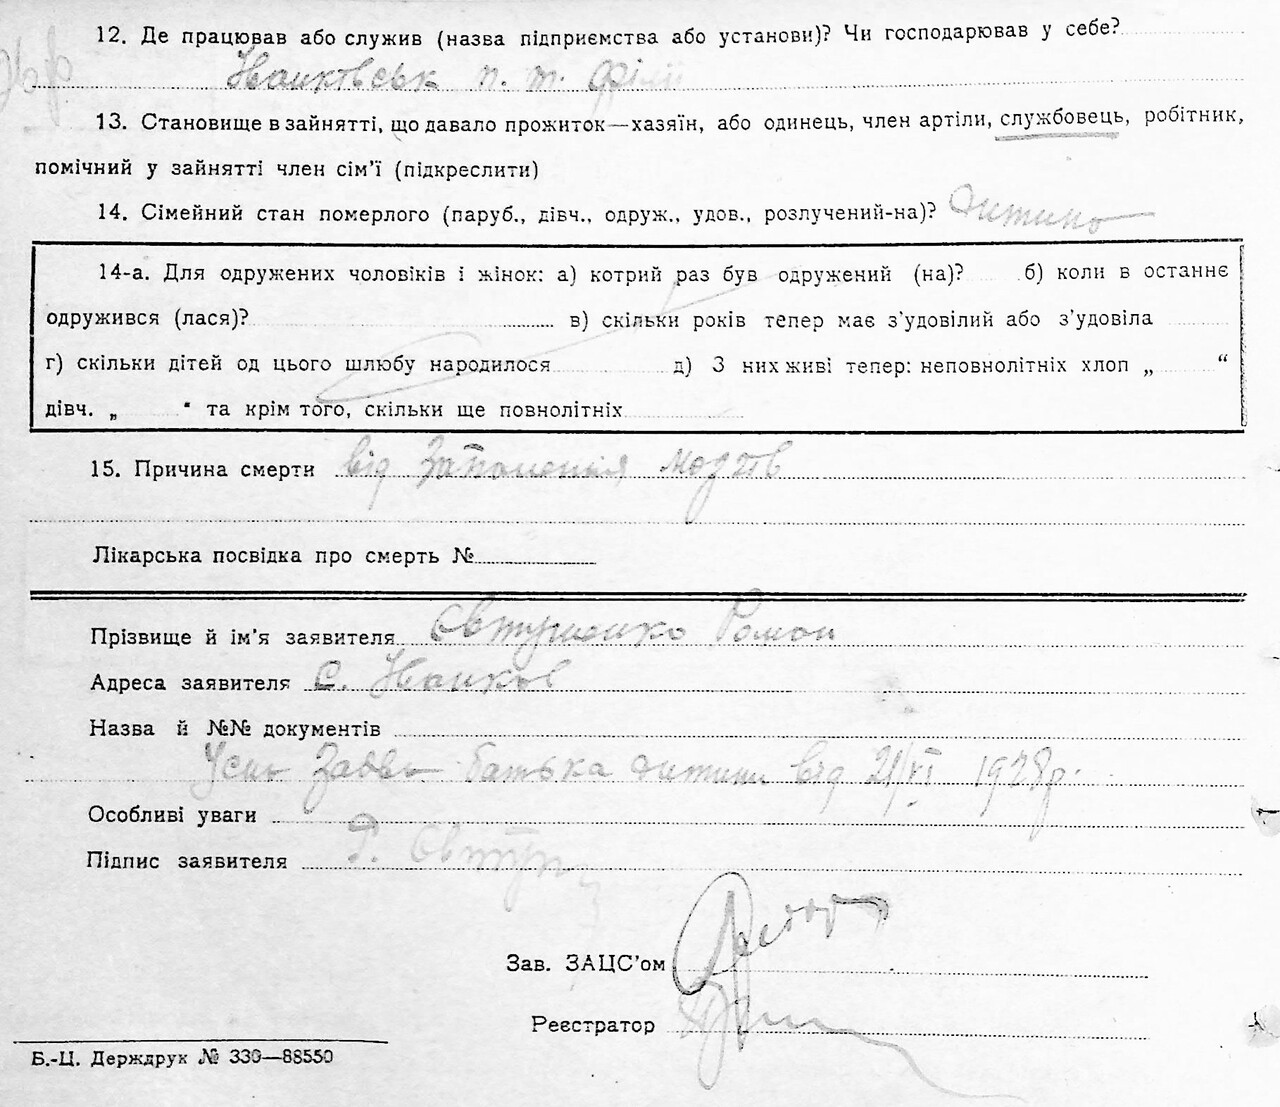 12. Де працював або служив (назва підприємства або установи)? Чи господарював у себе?
п. т.
13. Становище в зайнятті, що давало прожиток—хазяїн, або одинець, член артіли, службовець, робітник,
помічний у зайнятті член сім’ї (підкреслити)
14. Сімейний стан померлого (паруб., дівч., одруж., удов., розлучений-на)? дитина
14-а. Для одружених чоловіків і жінок: а) котрий раз був одружений (на)? б) коли в останнє
одружився (лася)? в) скільки років тепер має з’удовілий або з’удовіла
г) скільки дітей од цього шлюбу народилося д) З них живі тепер: неповнолітніх хлоп „ “
дівч. „ “ та крім того, скільки ще повнолітніх
15. Причина смерти від запалення мозків
Лікарська посвідка про смерть №
Прізвище й ім’я заявителя Євтушенко Роман
Адреса заявителя с.
Назва й №№ документів
Усна заява батька дитини від 21/VI 1928р.
Особливі уваги
Підпис заявителя Р. Євтуш
Зав. ЗАЦС’ом
Реєстратор
Б.-Ц. Держдрук № 330—88550